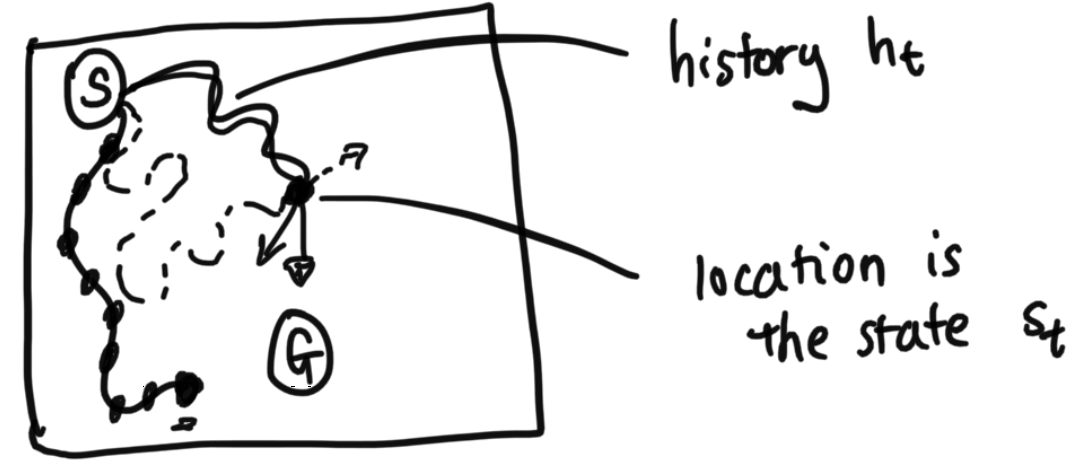 S
history ht
location is
the state St
G